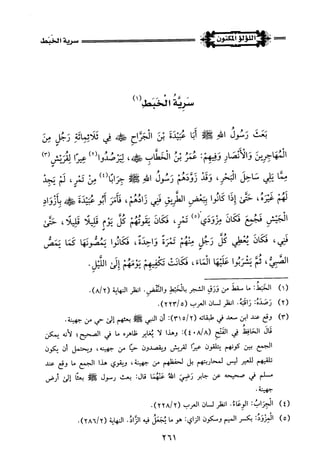 اللؤلؤ المكنون
سرية الخبط
سَرِيَّةُ الْخَبَطِ(١)
بَعَثَ رَسُولُ اللهِ ﷺ أَبَا عُبَيْدَةَ بْنَ الْجَرَّاحِ ﷺ فِي ثَلَاثِمِائَةِ رَجُلٍ مِنَ
الْمُهَاجِرِينَ وَالْأَنْصَارِ وَفِيهِمْ: عُمَرُ بْنُ الْخَطَّابِ ﷺ، لِيَرْصُدُوا(٢) عِيرًا لِقُرَيْشٍ(٣)
مِمَّا يَلِي سَاحِلَ الْبَحْرِ، وَقَدْ زَوَّدَهُمْ رَسُولُ اللهِ ﷺ جِرَابًا(٤) مِنْ تَمْرٍ، لَمْ يَجِدْ
لَهُمْ غَيْرَهُ، حَتَّى إِذَا كَانُوا بِبَعْضِ الطَّرِيقِ فَنِيَ زَادُهُمْ، فَأَمَرَ أَبُو عُبَيْدَةَ ﷺ بِأَزْوَادِ
الْجَيْشِ فَجُمِعَ فَكَانَ مِزْوَدَيْ(٥) تَمْرٍ، فَكَانَ يَقُوتُهُمْ كُلَّ يَوْمٍ قَلِيلًا قَلِيلًا، حَتَّى
فَنِيَ، فَكَانَ يُعْطِي كُلَّ رَجُلٍ مِنْهُمْ تَمْرَةً وَاحِدَةً، فَكَانُوا يَمَصُّونَهَا كَمَا يَمَصُّ
الصَّبِيُّ، ثُمَّ يَشْرَبُوا عَلَيْهَا الْمَاءَ، فَكَانَتْ تَكْفِيهِمْ يَوْمَهُمْ إِلَى اللَّيْلِ.
(١) الخَبَطُ: ما سقط من وَرَقِ الشجر بالخَبْطِ والنَّفْضِ. انظر النهاية (٨/٢).
(٢) رَصَدَهُ: رَاقَبَهُ. انظر لسان العرب (٢٢٣/٥).
(٣) وقع عند ابن سعد في طبقاته (٣١٥/٢): أن النبي ﷺ بعثهم إلى حي من جهينة.
قال الحَافِظُ في الفَتْحِ (٤٠٨/٨): وهذا لا يُغاير ظاهره ما في الصحيح، لأنه يمكن
الجمع بين كونهم يتلقون عيرًا لقريش ويقصدون حيًا من جهينة، ويحتمل أن يكون
تلقيهم للعير ليس لمحاربتهم بل لحفظهم من جهينة، ويقوي هذا الجمع ما وقع عند
مسلم في صحيحه عن جابر رَضِيَ اللهُ عَنْهُمَا قال: بعث رسول ﷺ بعثًا إلى أرض
جهينة.
(٤) الجِرَابُ: الوِعَاءُ. انظر لسان العرب (٢٢٨/٢).
(٥) المِزْوَدُ: بكسر الميم وسكون الزاي: هو ما يُجْعَلُ فيه الزَّادُ. النهاية (٢٨٦/٢).
٢٦١